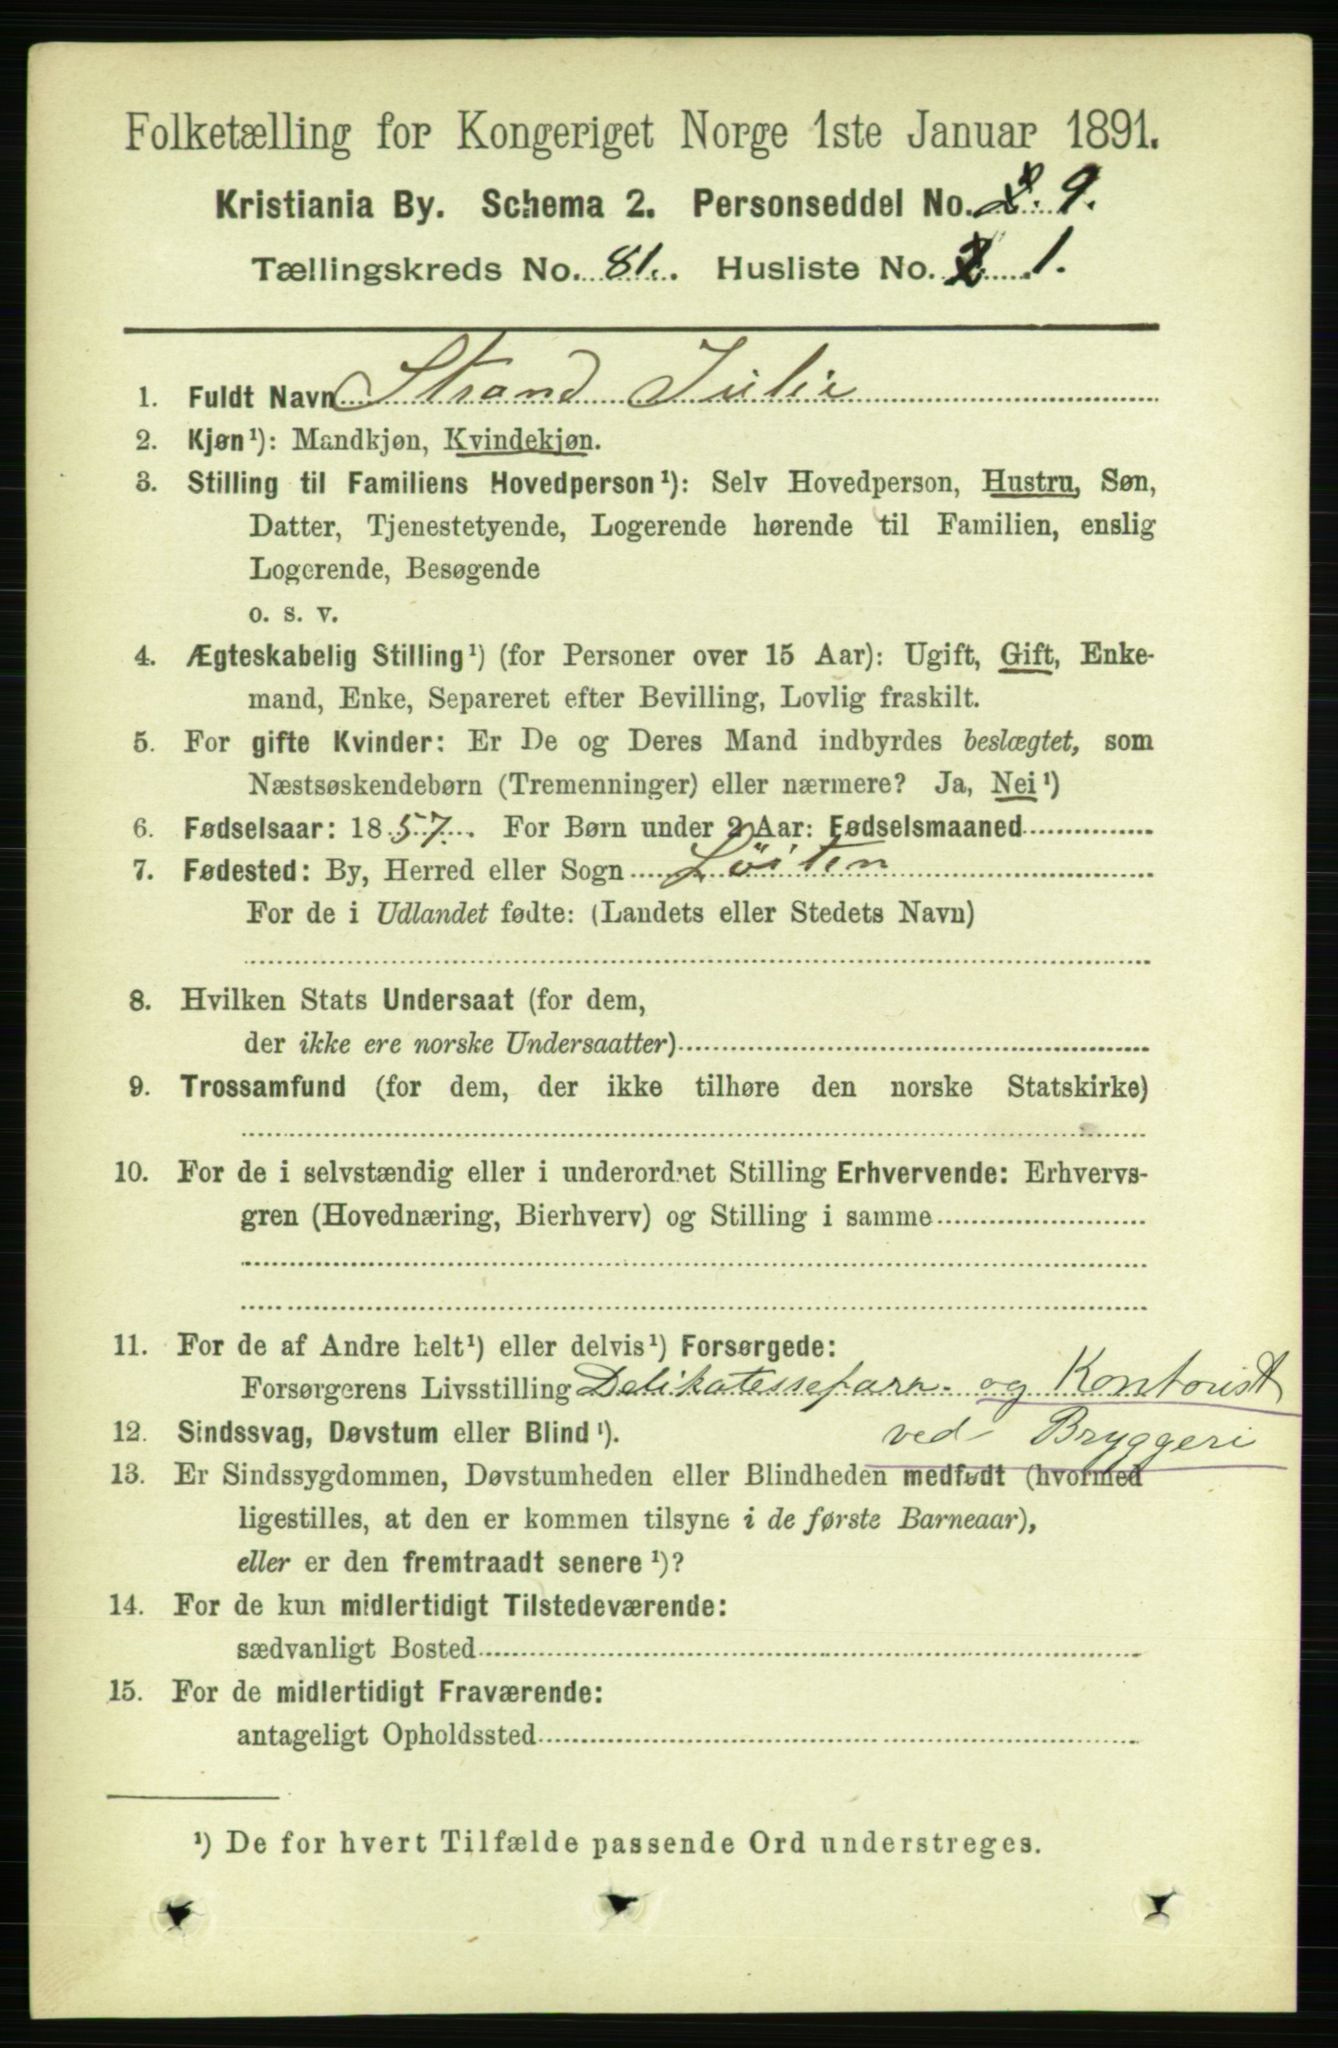 Folketælling for Kongeriget Norge 1ste Januar 1891.
Kristiania By. Schema 2. Personseddel No. 9.
Tællingskreds No. 81. Husliste No. 1.
1. Fuldt Navn Strand Julie
2. Kjøn¹): Mandkjøn, Kvindekjøn.
3. Stilling til Familiens Hovedperson¹): Selv Hovedperson, Hustru, Søn,
Datter, Tjenestetyende, Logerende hørende til Familien, enslig
Logerende, Besøgende
o. s. v.
4. Ægteskabelig Stilling¹) (for Personer over 15 Aar): Ugift, Gift, Enke-
mand, Enke, Separeret efter Bevilling, Lovlig fraskilt.
5. For gifte Kvinder: Er De og Deres Mand indbyrdes beslægtet, som
Næstsøskendebørn (Tremenninger) eller nærmere? Ja, Nei¹)
6. Fødselsaar: 1857. For Børn under 2 Aar: Fødselsmaaned
7. Fødested: By, Herred eller Sogn Löiten
For de i Udlandet fødte: (Landets eller Stedets Navn)
8. Hvilken Stats Undersaat (for dem,
der ikke ere norske Undersaatter)
9. Trossamfund (for dem, der ikke tilhøre den norske Statskirke)
10. For de i selvstændig eller i underordnet Stilling Erhvervende: Erhvervs-
gren (Hovednæring, Bierhverv) og Stilling i samme
11. For de af Andre helt¹) eller delvis¹) Forsørgede:
Forsørgerens Livsstilling og Kontorist
12. Sindssvag, Døvstum eller Blind¹). ved Bryggeri
13. Er Sindssygdommen, Døvstumheden eller Blindheden medfødt (hvormed
ligestilles, at den er kommen tilsyne i de første Barneaar),
eller er den fremtraadt senere¹)?
14. For de kun midlertidigt Tilstedeværende:
sædvanligt Bosted
15. For de midlertidigt Fraværende:
antageligt Opholdssted
¹) De for hvert Tilfælde passende Ord understreges.